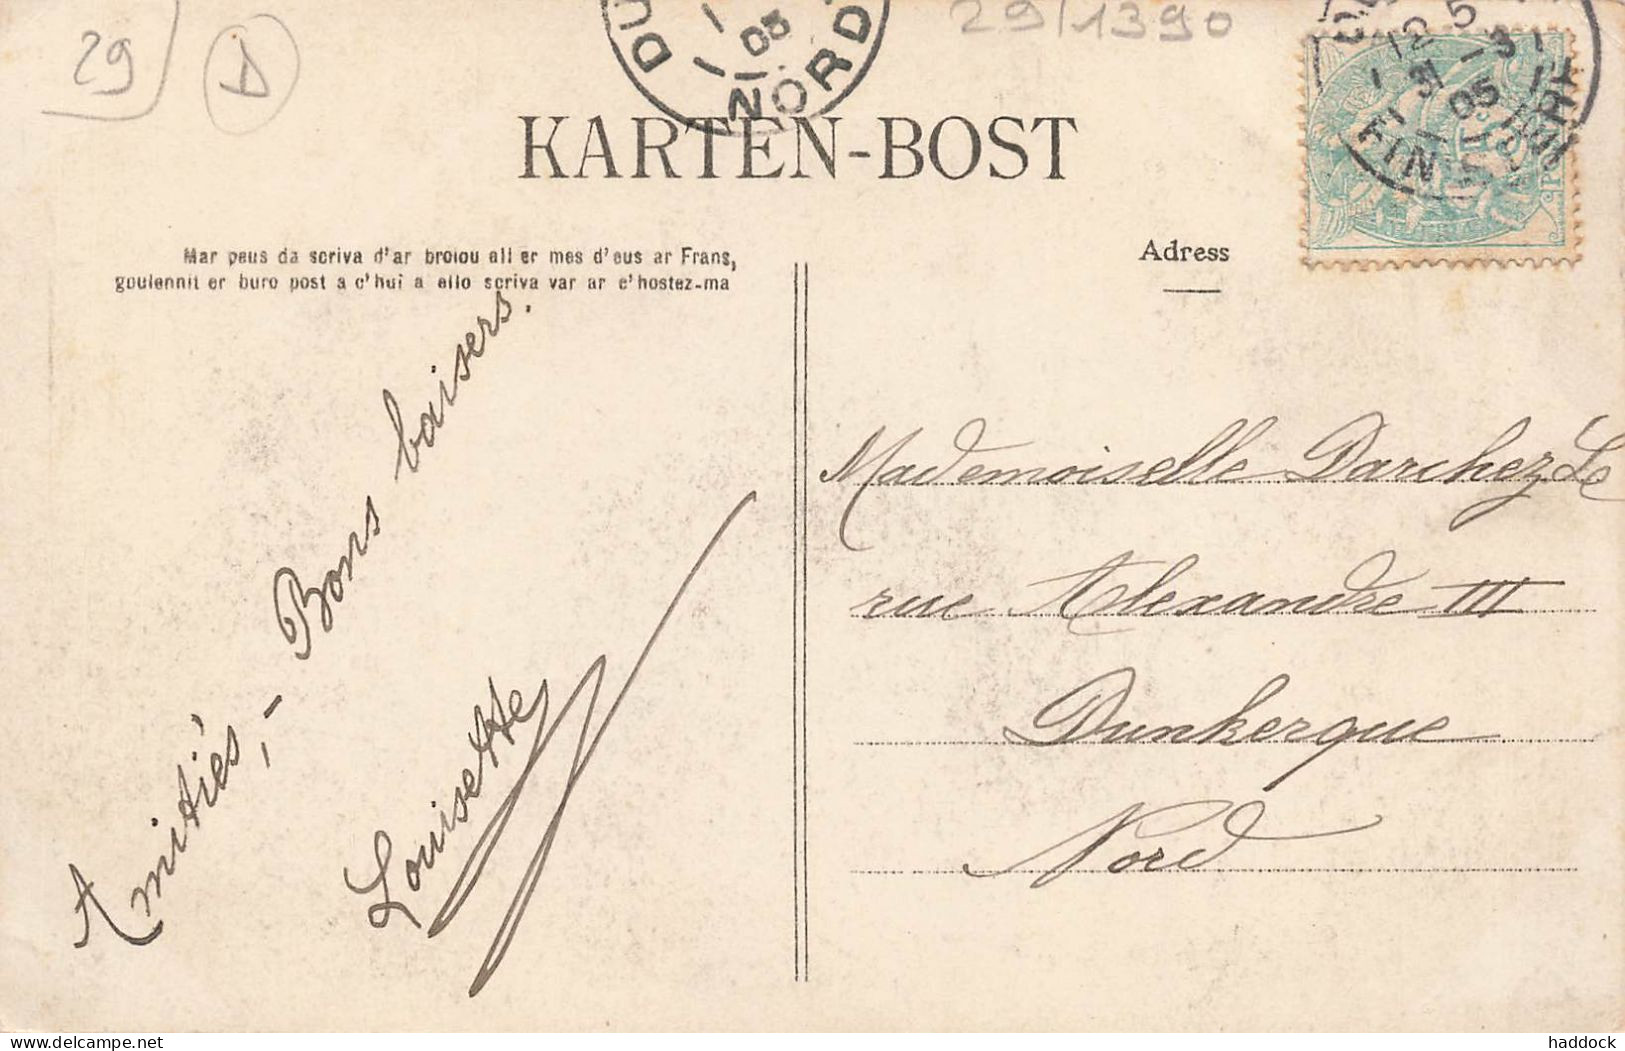 29
D
29/1390
DU
1
05
NORD
12 5
31 -3
05
FINISTÈRE
KARTEN-BOST
Mar peus da scriva d'ar broiou all er mes d'eus ar Frans,
goulennit er buro post a c'hui a ello scriva var ar c'hostez-ma
Adress
Amitiés,- Bons baisers.
Louisette
Mademoiselle Darchez Le
rue Alexandre III
Dunkerque
Nord
haddock